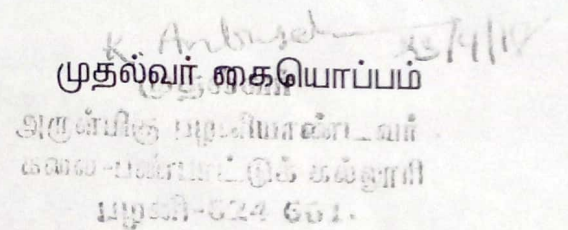 K. Anbusel 23/4/18
முதல்வர் கையொப்பம்
முதல்வர்
அருள்மிகு பழனியாண்டவர்
கலை-பண்பாட்டுக் கல்லூரி
பழனி-624 601.